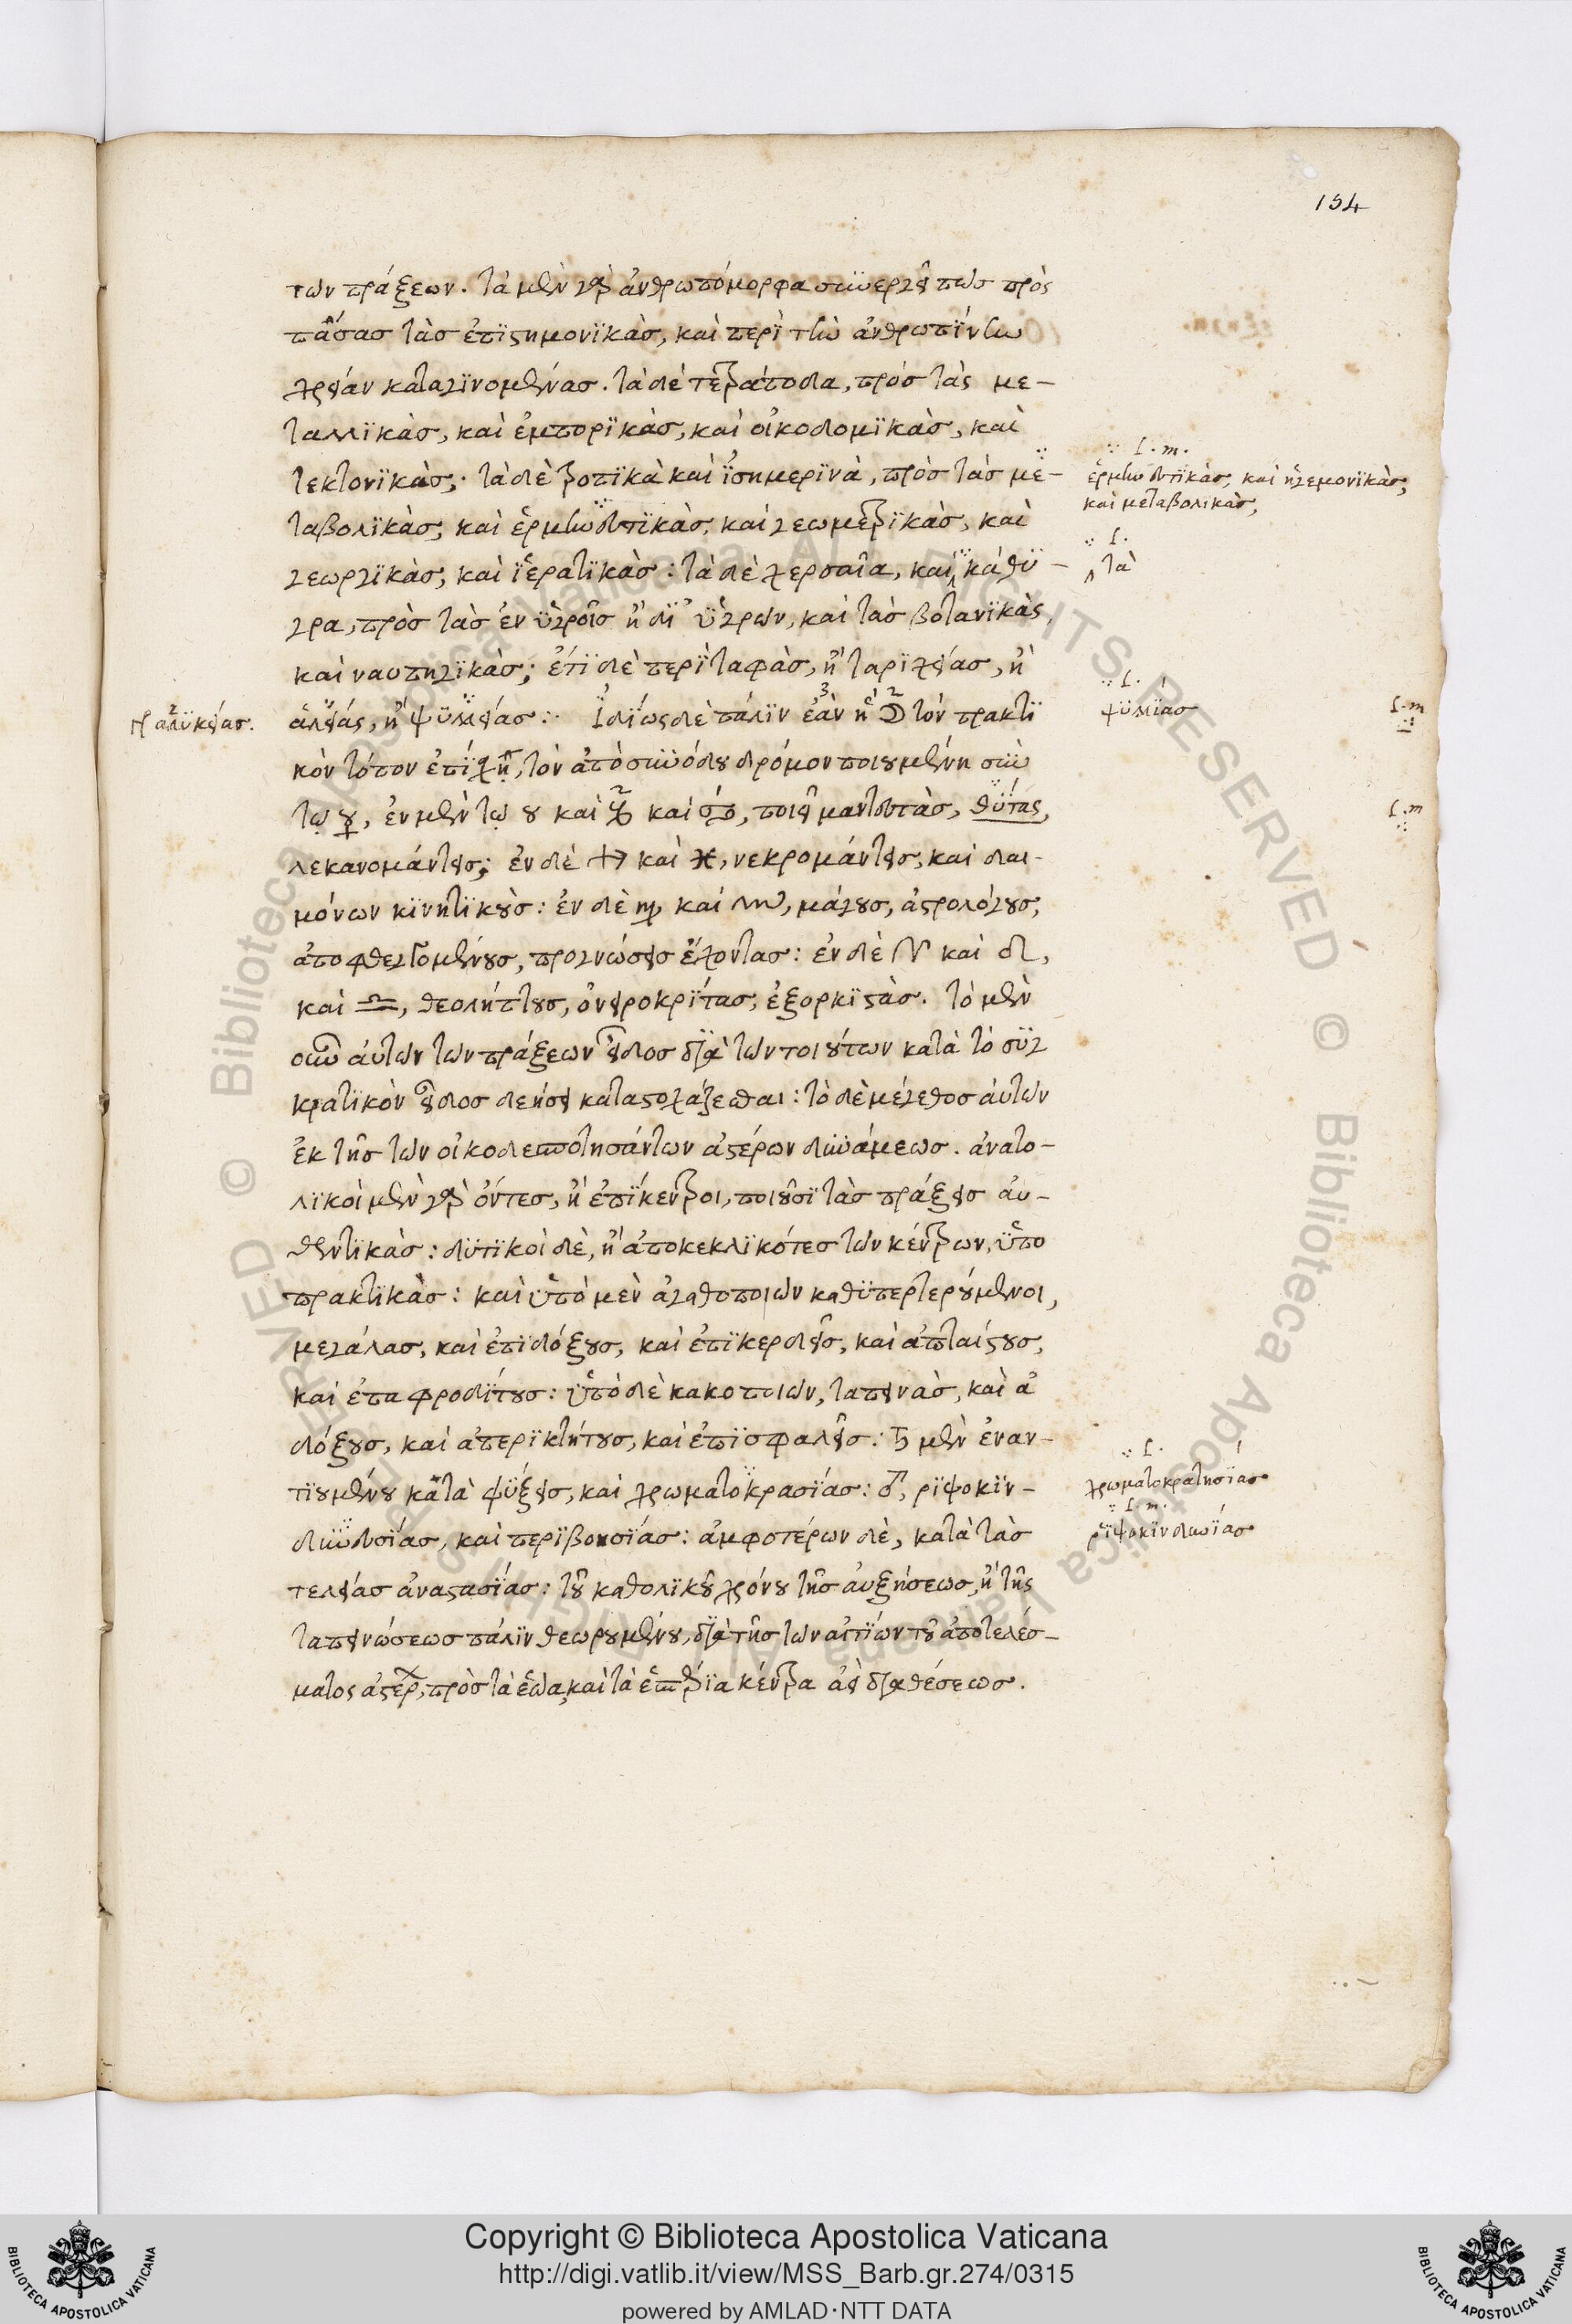 154
των πράξεων. τὰ μὲν γὰρ ἀνθρωπόμορφα συνεργεῖ πως πρὸς
πάσας τὰς ἐπιστημονϊκὰς, καὶ περὶ τὴν ἀνθρωπΐνην
χρείαν καταγϊνομένας. τὰ δὲ τετράποδα, πρὸς τὰς με-
ταλλϊκὰς, καὶ ἐμπορϊκὰς, καὶ οἰκοδομϊκὰς, καὶ
τεκτονϊκὰς· τὰ δὲ τροπϊκὰ καὶ ϊσημερϊνὰ, πρὸς τὰς με-
ταβολϊκὰς, καὶ ἑρμηνευτϊκὰς, καὶ γεωμετρϊκὰς, καὶ
γεωργϊκὰς, καὶ ϊερατϊκὰς: τὰ δὲ χερσαῖα, καὶ κάθϋ-
γρα, πρὸς τὰς ἐν ϋγροῖς ἢ δϊ' ϋγρῶν, καὶ τὰς βοτανϊκὰς,
καὶ ναυπηγϊκὰς· ἔτϊ δὲ περὶ ταφὰς, ἢ ταρϊχείας, ἢ
ἁλείας, ἢ ψϋλλείας: Ἰδΐως δὲ πάλϊν ἐὰν ἡ ☽ τὸν πρακτϊ
κὸν τόπον ἐπΐσχῃ, τὸν ἀπὸ συνόδου δρόμον ποιουμένη σὺν
τῷ ☿, ἐν μὲν τῷ ♉ καὶ ♑ καὶ ♋, ποιεῖ μάντεις, θΰτας,
λεκανομάντεις· ἐν δὲ ♐ καὶ ♓, νεκρομάντεις, καὶ δαι-
μόνων κϊνητϊκούς: ἐν δὲ ♍ καὶ ♏, μάγους, ἀστρολόγους,
ἀποφθεγγομένους, προγνώσεις ἔχοντας: ἐν δὲ ♈ καὶ ♌,
καὶ ♎, θεολήπτους, ὀνειροκρΐτας, ἐξορκϊστάς. τὸ μὲν
οὖν αὐτῶν τῶν πράξεων εἶδος δϊὰ τῶν τοιούτων κατὰ τὸ συγ
κρατϊκὸν εἶδος δεήσει καταστοχάζεσθαι: τὸ δὲ μέγεθος αὐτῶν
ἐκ τῆς τῶν οἰκοδεσποτησάντων ἀστέρων δυνάμεως. ἀνατο-
λϊκοὶ μὲν γὰρ ὄντες, ἢ ἐπΐκεντροι, ποιοῦσϊ τὰς πράξεις αὐ-
θεντϊκὰς: δϋτϊκοὶ δὲ, ἢ ἀποκεκλϊκότες τῶν κέντρων, ϋπο
πρακτϊκὰς: καὶ ὑπὸ μὲν ἀγαθοποιῶν καθϋπερτερούμενοι,
μεγάλας, καὶ ἐπϊδόξους, καὶ ἐπϊκερδεῖς, καὶ ἀπταίστους,
καὶ ἐπαφροδΐτους: ὑπὸ δὲ κακοποιῶν, ταπεινὰς, καὶ ἀ
δόξους, καὶ ἀπερϊκτήτους, καὶ ἐπϊσφαλεῖς: ♄ μὲν ἐναν-
τϊουμένου κατὰ ψΰξεις, καὶ χρωματοκρασΐας: ♂, ρϊψοκϊν-
δϋνευσΐας, καὶ περϊβοησΐας: ἀμφοτέρων δὲ, κατὰ τὰς
τελείας ἀναστασΐας: τοῦ καθολϊκοῦ χρόνου τῆς αὐξήσεως, ἢ τῆς
ταπεινώσεως πάλϊν θεωρουμένου, δϊὰ τῆς τῶν αἰτΐων τοῦ ἀποτελέσ-
ματος ἀστέρων, πρὸς τὰ ἑῷα, καὶ τὰ ἑσπέρϊα κέντρα ἀεὶ δϊαθέσεως.
ἁλϋκείας.
f. m.
ἑρμηνευτϊκὰς, καὶ ἡγεμονϊκὰς,
καὶ μεταβολικὰς,
f.
τὰ
f.
ψϋλλΐας
f. m
f. m
f.
χρωματοκρατησΐας
f. m.
ρϊψοκϊνδυνΐας
Copyright © Biblioteca Apostolica Vaticana
http://digi.vatlib.it/view/MSS_Barb.gr.274/0315
powered by AMLAD·NTT DATA